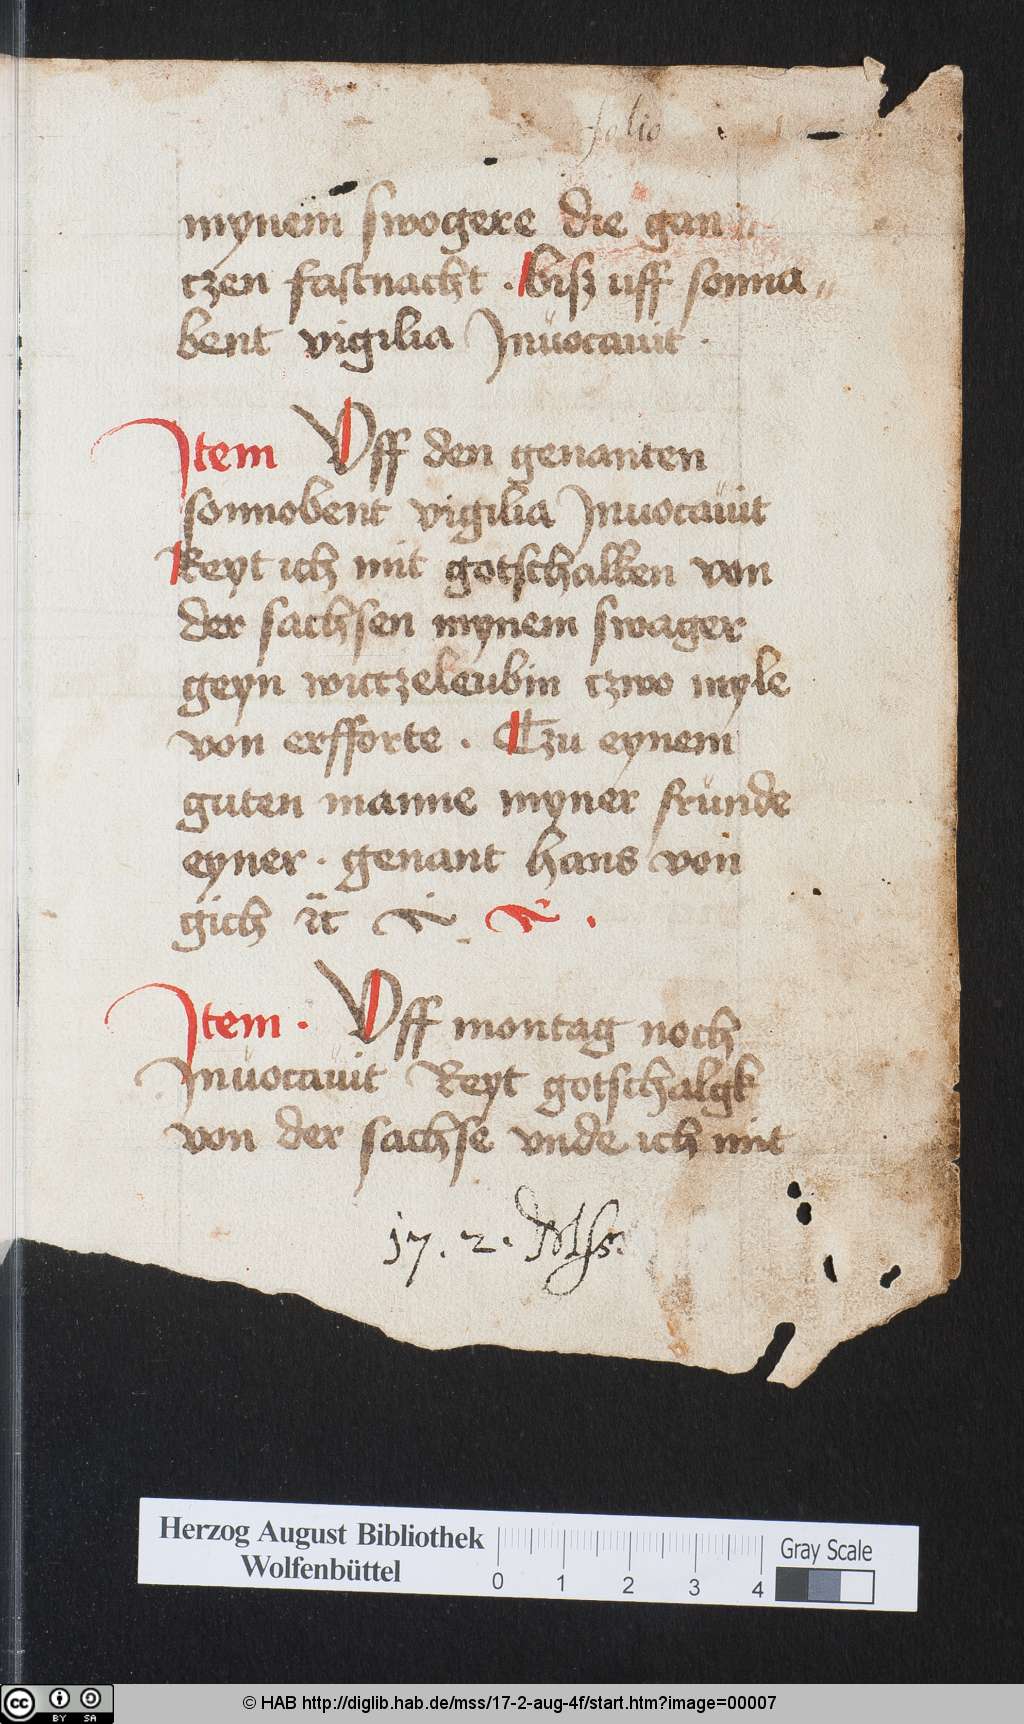 folio
mynem swogere die gan„
tzen fastnacht . Bisz uff sonna„
bent vigilia Inuocauit .
Item Vff den genanten
sonnobent vigilia Inuocauit
Reyt ich mit gotschalken von
der sachsen mynem swager
geyn witzeleubin czwo myle
von erfforte . Czu eynem
guten manne myner frunde
eyner . genant hans von
gich
Item . Vff montag noch
Inuocauit Reyt gotschalgk
von der sachse vnde ich mit
17. 2. Mss.
Herzog August Bibliothek
Wolfenbüttel
0 1 2 3 4
Gray Scale
cc BY SA
© HAB http://diglib.hab.de/mss/17-2-aug-4f/start.htm?image=00007